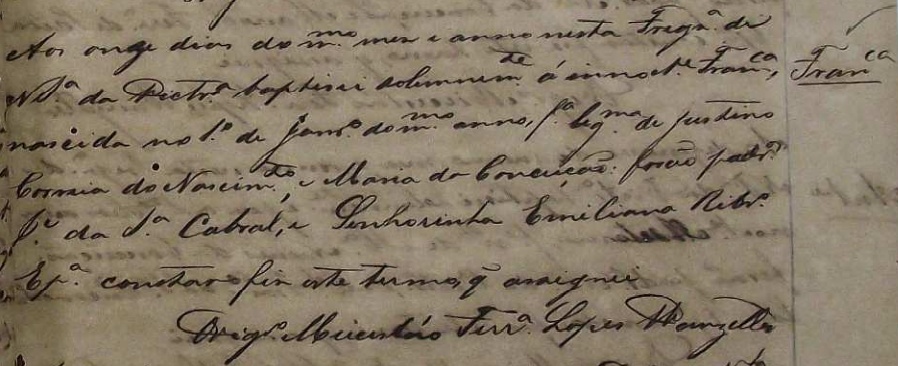 Aos onze dias do m.mo mez e anno nesta Freg.a de
N. S.a da baptisei solemnem.te á innoc.te Fran.ca,
Fran.ca
nascida no 1.o de Janr.o do m.mo anno, f.a leg.ma de Justino
Correia do Nascim.to, e Maria da Conceição: forão padr.os
J.e da S.a Cabral, e Senhorinha Emiliana Ribr.o
E p.a constar fiz este termo, q assignei
Ferr.a Lopes